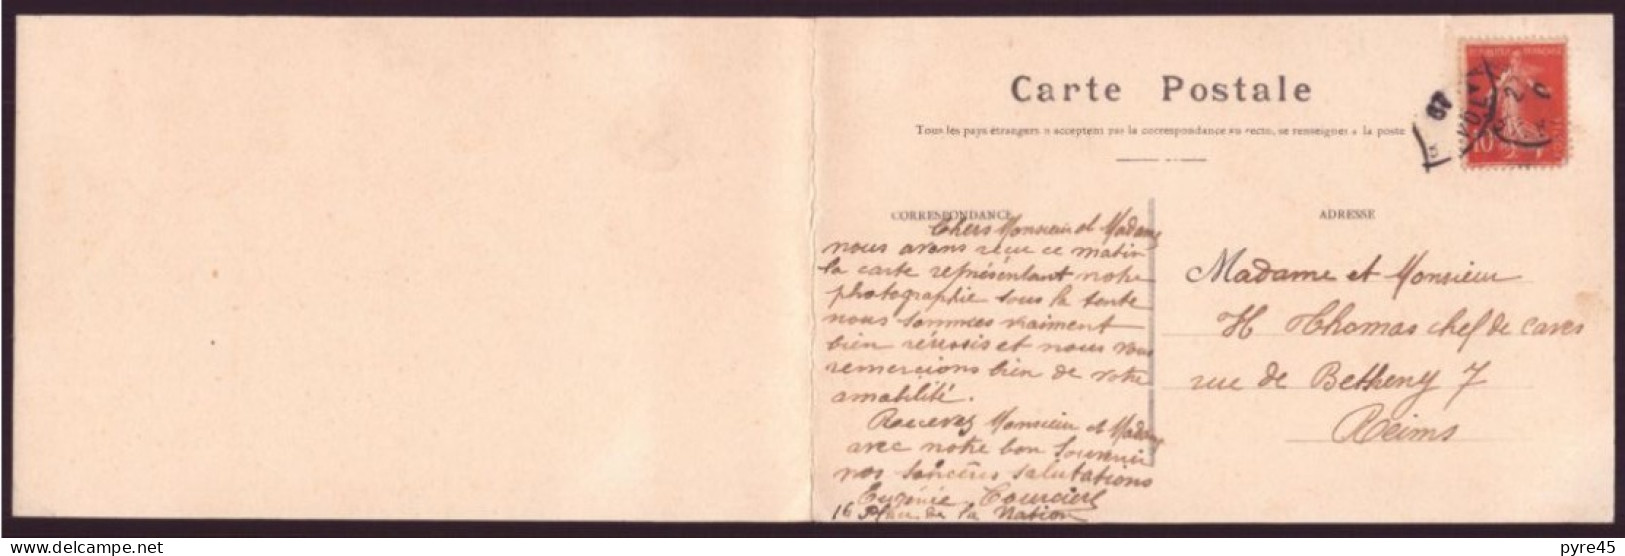 Carte Postale
Tous les pays étrangers n acceptent pas la correspondance au recto, se renseigner a la poste
CORRESPONDANCE
Chers Monsieur et Madame
nous avons reçu ce matin
la carte représentant notre
photographie sous la tente
nous sommes vraiment
bien réussis et nous vous
remercions bien de votre
amabilité.
Recevez Monsieur et Madame
avec notre bon souvenir
nos sincères salutations
Eugénie
16 Place de la Nation
ADRESSE
Madame et Monsieur
H Thomas chef de caves
rue de Betheny 7
Reims
10
07
pyre45